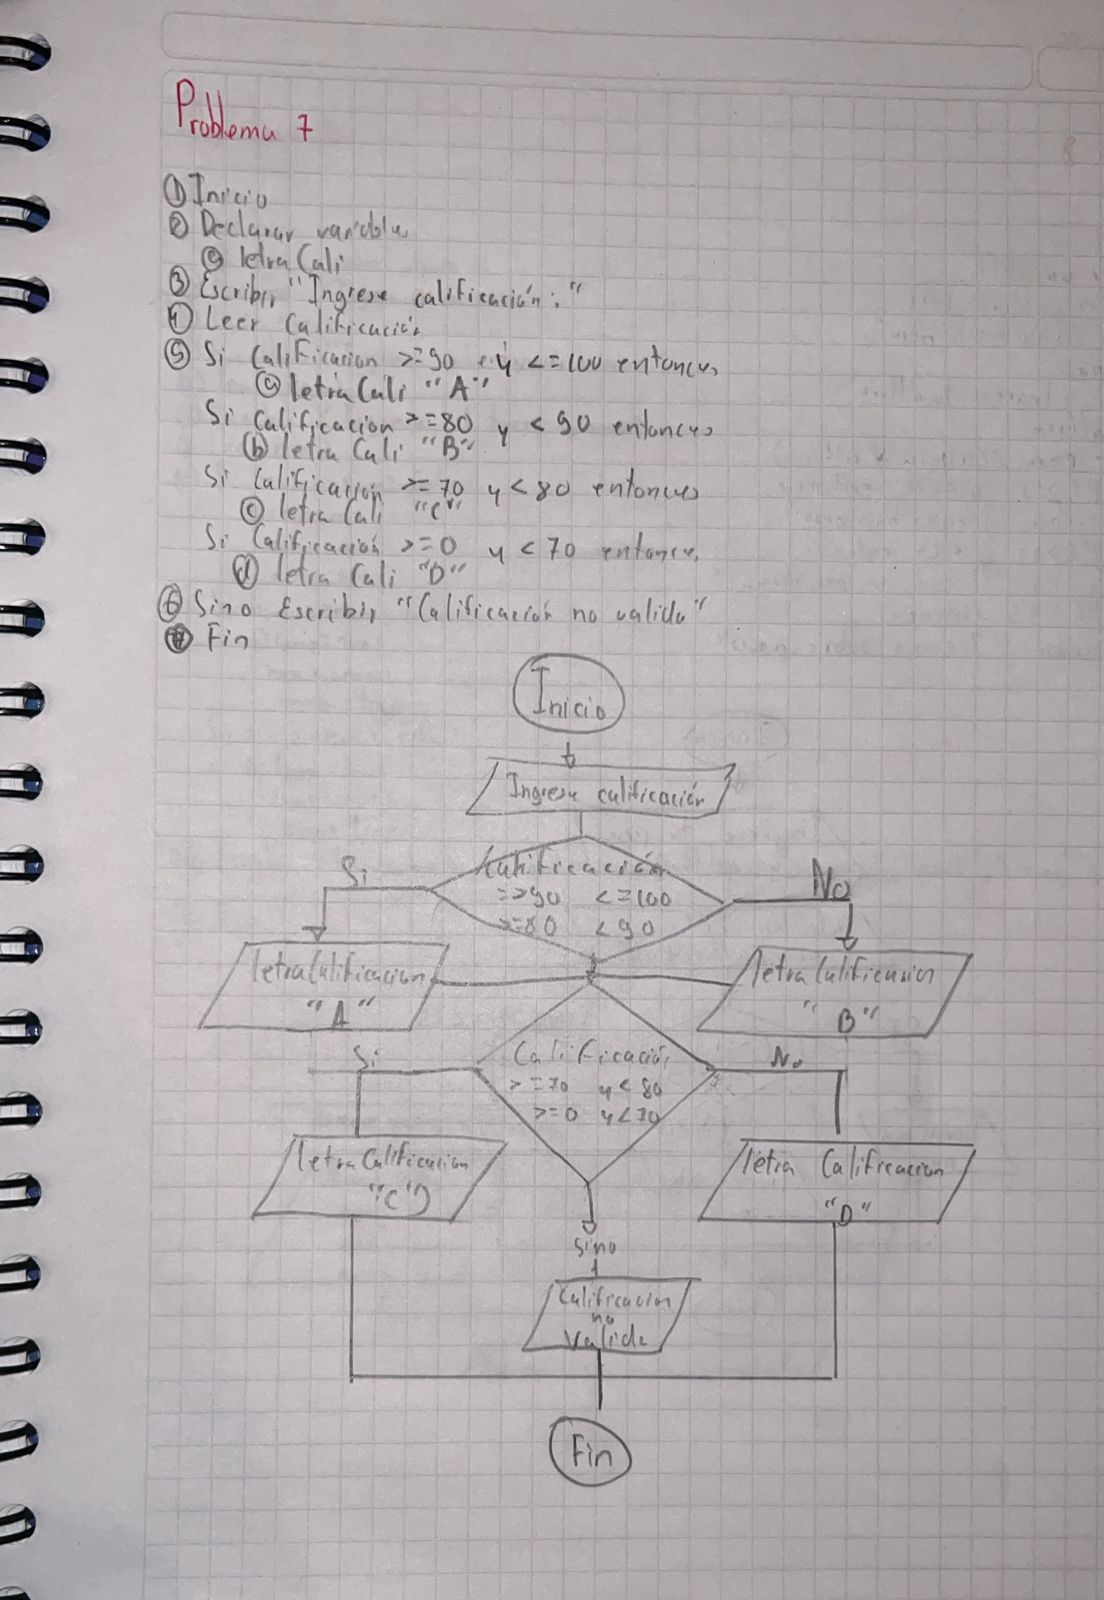 Problema 7
① Inicio
② Declarar variables
ⓐ letra Cali
③ Escribir "Ingrese calificación:"
④ Leer Calificación
⑤ Si Calificacion >=90 y <=100 entonces
ⓐ letra Cali "A"
Si Calificacion >=80 y < 90 entonces
ⓑ letra Cali "B"
Si Calificación >=70 y <80 entonces
ⓒ letra Cali "C"
Si Calificación >=0 y <70 entonces
ⓓ letra Cali "D"
⑥ Sino Escribir "Calificación no valida"
⑦ Fin
Inicio
Ingrese calificación
Calificación
=>90 <=100
>=80 <90
Si
No
letra Calificacion
"A"
letra Calificacion
"B"
Calificación
>=70 y<80
>=0 y<70
Si
No
letra Calificacion
"C")
letra Calificacion
"D"
Sino
Calificacion
no
valida
Fin